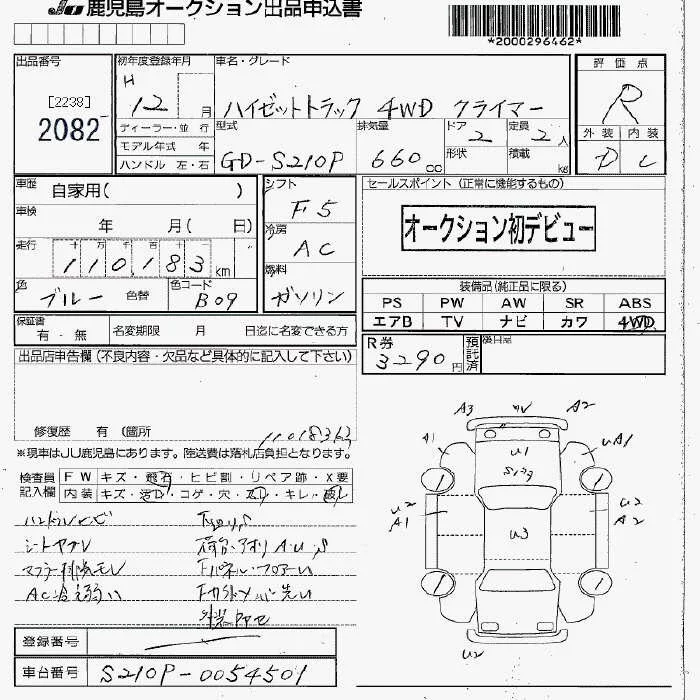 JU 鹿児島オークション出品申込書
*2000296462*
出品番号
[2238]
2082
初年度登録年月
H
12 月
ディーラー・並 行
モデル年式 年
ハンドル 左・右
車名・グレード
ハイゼットトラック 4WD クライマー
型式
GD-S210P
排気量
660 cc
ドア 2
形状
定員 2 人
積載 kg
評価点
R
外装 内装
D C
車歴 自家用( )
車検 年 月( 日)
走行 十 万 千 百 十
110,183 km
色 ブルー 色替
色コード B09
シフト
F5
冷房
AC
燃料
ガソリン
セールスポイント (正常に機能するもの)
オークション初デビュー
装備品(純正品に限る)
PS PW AW SR ABS
エアB TV ナビ カワ 4WD
保証書 有・無
名変期限 月 日迄に名変できる方
R券
3290円
預託済
後日品
出品店申告欄(不良内容・欠品など具体的に記入して下さい)
修復歴 有 (箇所
11018363
※現車はJU鹿児島にあります。陸送費は落札店負担となります。
検査員記入欄
FW キズ・飛石・ヒビ割・リペア跡・X要
内装 キズ・汚レ・コゲ・穴・
・キレ・
シートヤブレ
AC冷え弱い
登録番号
車台番号 S210P-0054501
A3 A2
A1 U1 UA1
U2 A1 U3 U2 A2
U2